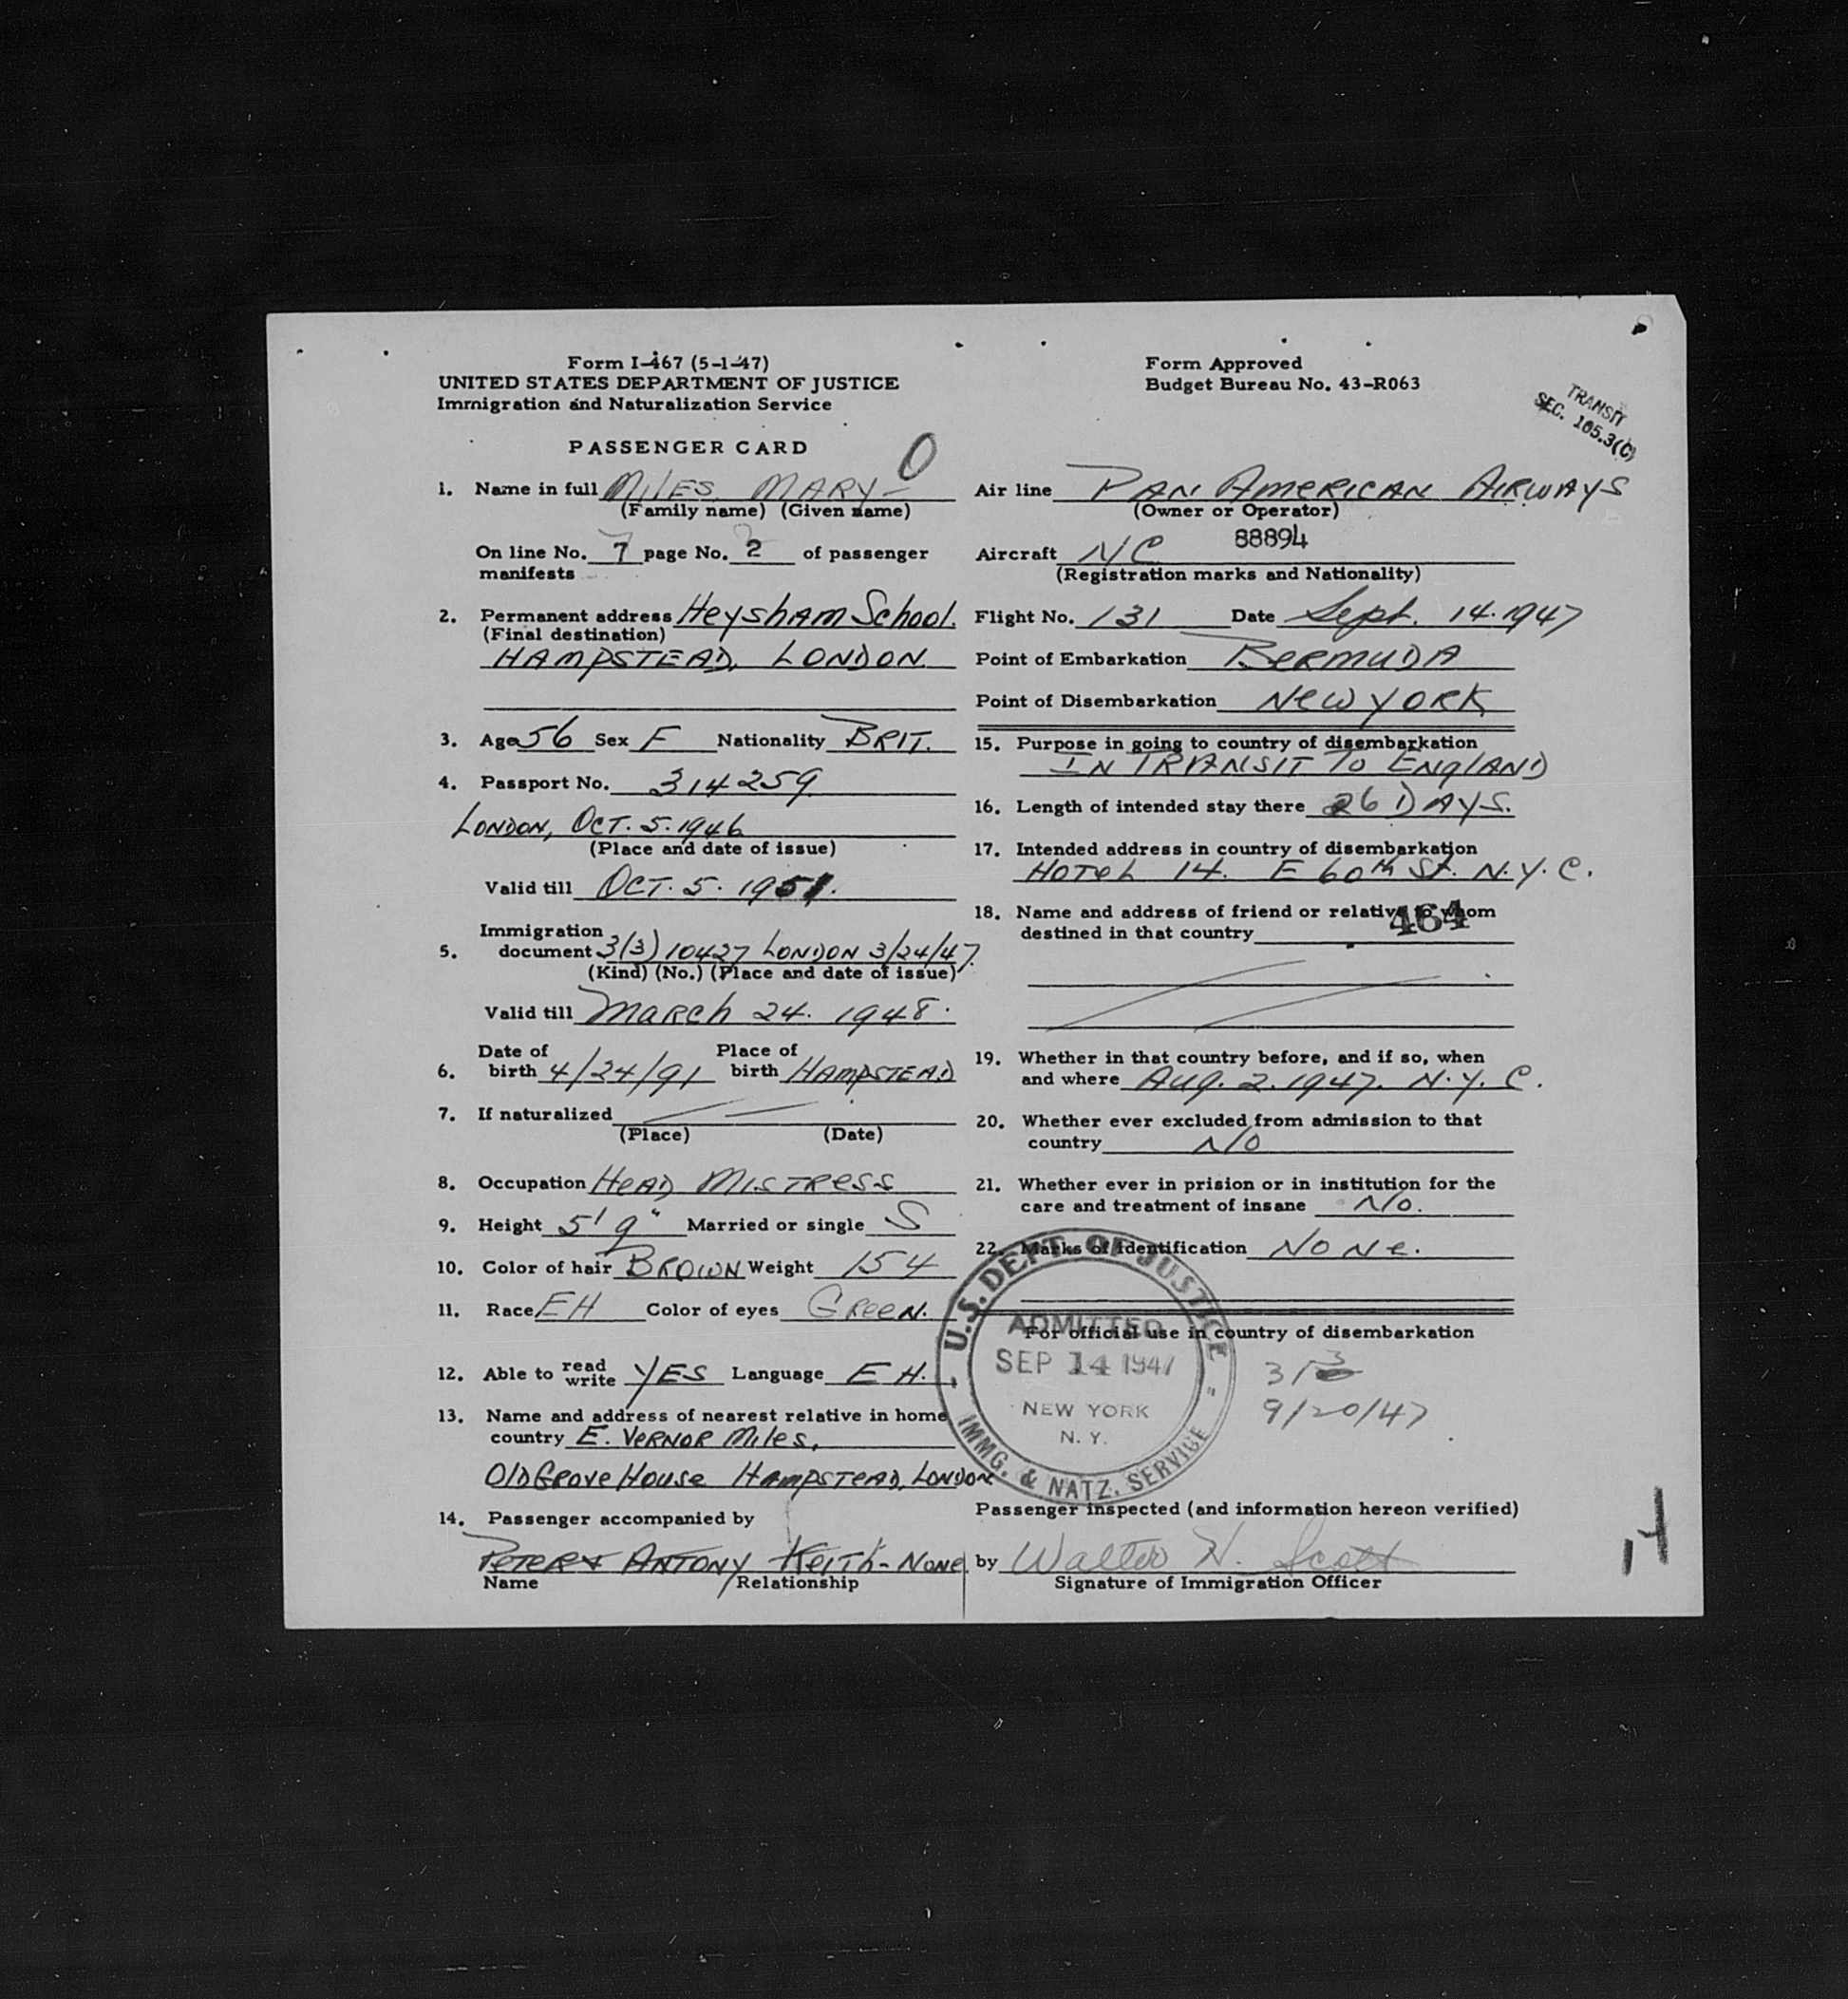 Form I-467 (5-1-47)
UNITED STATES DEPARTMENT OF JUSTICE
Immigration and Naturalization Service
PASSENGER CARD
O
1. Name in full MILES, MARY -
(Family name) (Given name)
On line No. 7 page No. 2 of passenger
manifests
2. Permanent address Heysham School.
(Final destination)
HAMPSTEAD, LONDON
3. Age 56 Sex F Nationality BRIT.
4. Passport No. 314259
LONDON, OCT. 5. 1946
(Place and date of issue)
Valid till OCT. 5. 1951.
Immigration
5. document 3(3) 10427 LONDON 3/24/47.
(Kind) (No.) (Place and date of issue)
Valid till March 24. 1948.
Date of Place of
6. birth 4/24/91 birth HAMPSTEAD
7. If naturalized
(Place) (Date)
8. Occupation HEAD MISTRESS
9. Height 5' 9" Married or single S
10. Color of hair BROWN Weight 154
11. Race EH Color of eyes GREEN.
12. Able to read write YES Language EH.
13. Name and address of nearest relative in home
country E. VERNOR Miles,
Old Grove House HAMPSTEAD, LONDON
14. Passenger accompanied by
PETER & ANTONY KEITH - NONE
Name Relationship
Form Approved
Budget Bureau No. 43-R063
TRANSIT
SEC. 165.3(C)
Air line PAN AMERICAN AIRWAYS
(Owner or Operator)
Aircraft NC 88894
(Registration marks and Nationality)
Flight No. 131 Date Sept. 14. 1947
Point of Embarkation BERMUDA
Point of Disembarkation NEW YORK
15. Purpose in going to country of disembarkation
IN TRANSIT TO ENGLAND
16. Length of intended stay there 26 DAYS.
17. Intended address in country of disembarkation
HOTEL 14. E 60th St. N.Y.C.
18. Name and address of friend or relative to whom
destined in that country 464
19. Whether in that country before, and if so, when
and where AUG. 2. 1947. N.Y.C.
20. Whether ever excluded from admission to that
country NO
21. Whether ever in prision or in institution for the
care and treatment of insane NO.
22. Marks of identification NONE.
For official use in country of disembarkation
U.S. DEPT. OF JUSTICE
ADMITTED
SEP 14 1947
NEW YORK
N. Y.
IMMG. & NATZ. SERVICE
9/20/47
Passenger inspected (and information hereon verified)
by Walter N. Scott
Signature of Immigration Officer